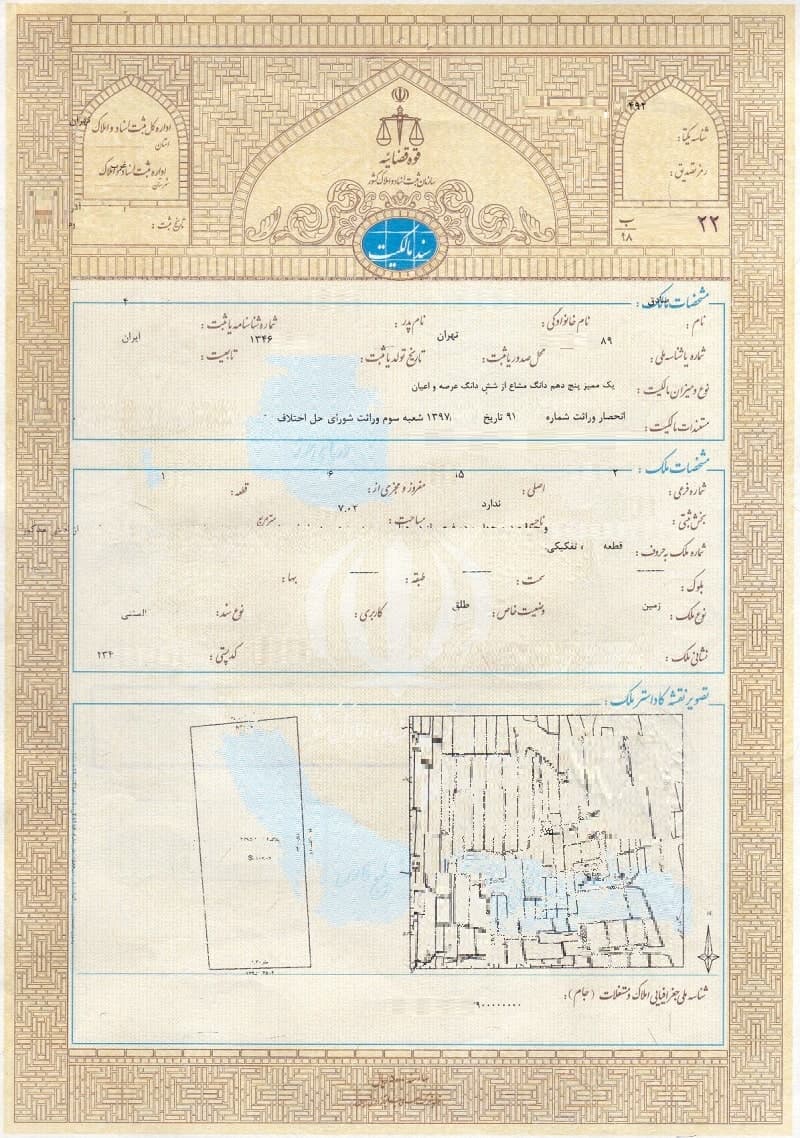 قوه قضائیه
سازمان ثبت اسناد و املاک کشور
سند مالکیت
اداره کل ثبت اسناد و املاک
استان
تهران
اداره ثبت اسناد و املاک
تاریخ ثبت :
۴۹۲
شناسه یکتا :
رمز تصدیق :
ب
۹۸
۲۲
مشخصات مالک :
نام :
نام خانوادگی :
نام پدر :
شماره شناسنامه یا ثبت :
۴
شماره یا شناسه ملی :
۸۹
محل صدور یا ثبت :
تهران
تاریخ تولد یا ثبت :
۱۳۴۶
تابعیت :
ایران
نوع و میزان مالکیت :
یک ممیز پنج دهم دانگ مشاع از شش دانگ عرصه و اعیان
مستندات مالکیت :
انحصار وراثت شماره ۹۱ تاریخ ۱۳۹۷/ شعبه سوم وراثت شورای حل اختلاف
مشخصات ملک :
شماره فرعی :
۲
اصلی :
۱۵
مفروز و مجزی از :
۶
قطعه :
۱
بخش ثبتی :
ناحیه :
ندارد
مساحت :
۷.۰۲
متر مربع
شماره ملک به حروف :
قطعه ، تفکیکی
بلوک :
سمت :
طبقه :
بها :
نوع ملک :
زمین
وضعیت خاص :
طلق
کاربری :
نوع سند :
المثنی
نشانی ملک :
کد پستی :
۱۳۴
تصویر نقشه کاداستر ملک :
دریای خزر
خلیج فارس
شناسه ملی جغرافیایی املاک و مستغلات (جام) :
۹۰۰۰۰۰۰۰۰